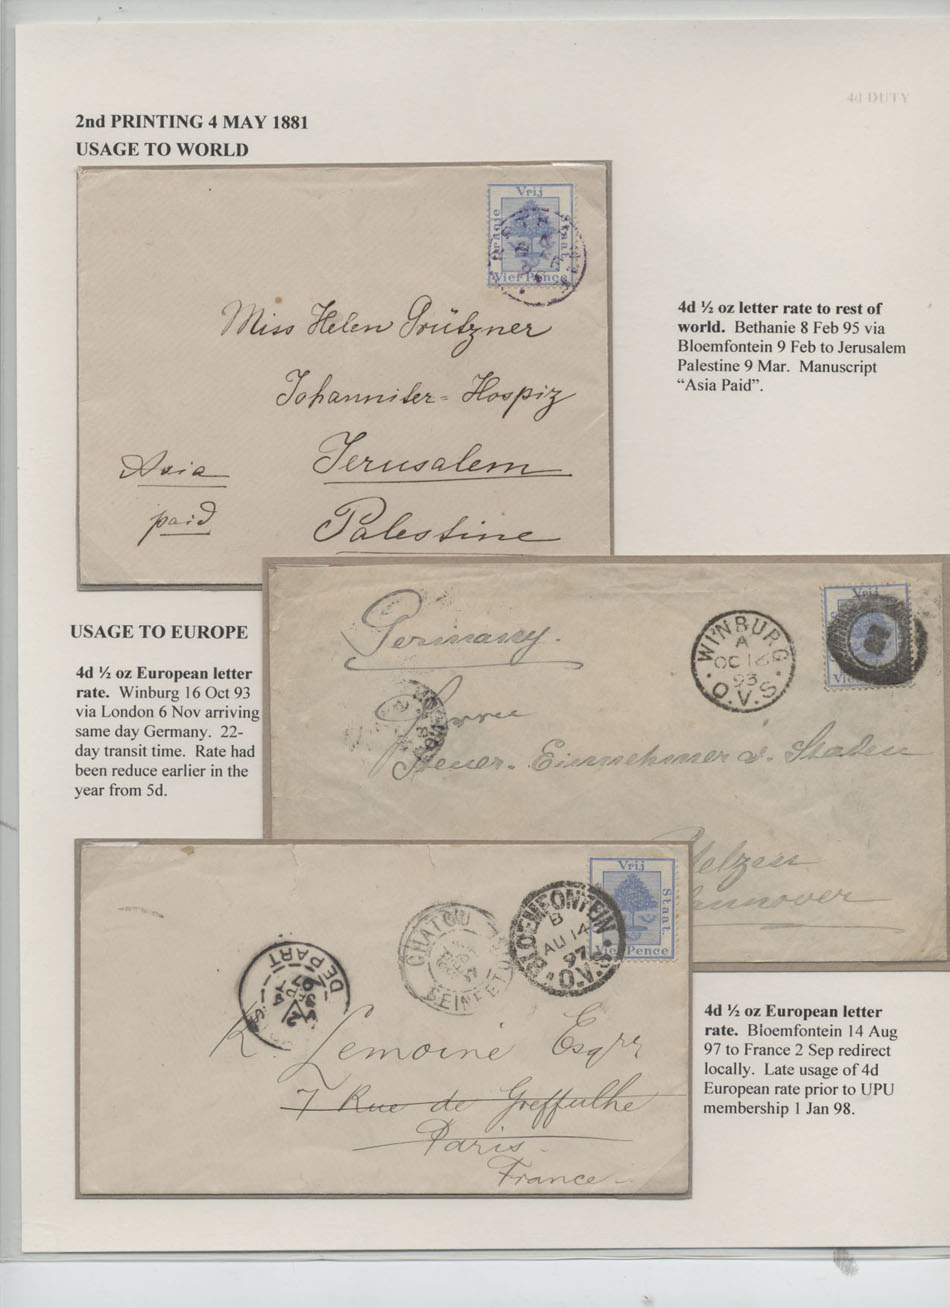 4d DUTY
2nd PRINTING 4 MAY 1881
USAGE TO WORLD
Vrij
Oranje
Staat.
Vier Pence
Miss Helen Prützner
Johanniter-Hospiz
Jerusalem
Palestine
Asia
paid
4d ½ oz letter rate to rest of
world. Bethanie 8 Feb 95 via
Bloemfontein 9 Feb to Jerusalem
Palestine 9 Mar. Manuscript
“Asia Paid”.
USAGE TO EUROPE
4d ½ oz European letter
rate. Winburg 16 Oct 93
via London 6 Nov arriving
same day Germany. 22-
day transit time. Rate had
been reduce earlier in the
year from 5d.
Germany.
WINBURG
A
OC 16
93
O.V.S.
Vrij
Steuer-Einnehmer v. Staden
elzen
annover
Vrij
Staat.
Vier Pence
BLOEMFONTEIN
B
AU 14
97
O.V.S.
CHATOU
SEINE ET
DEPART
Lemoine Esqrr
7 Rue de Greffulhe
Paris
France
4d ½ oz European letter
rate. Bloemfontein 14 Aug
97 to France 2 Sep redirect
locally. Late usage of 4d
European rate prior to UPU
membership 1 Jan 98.